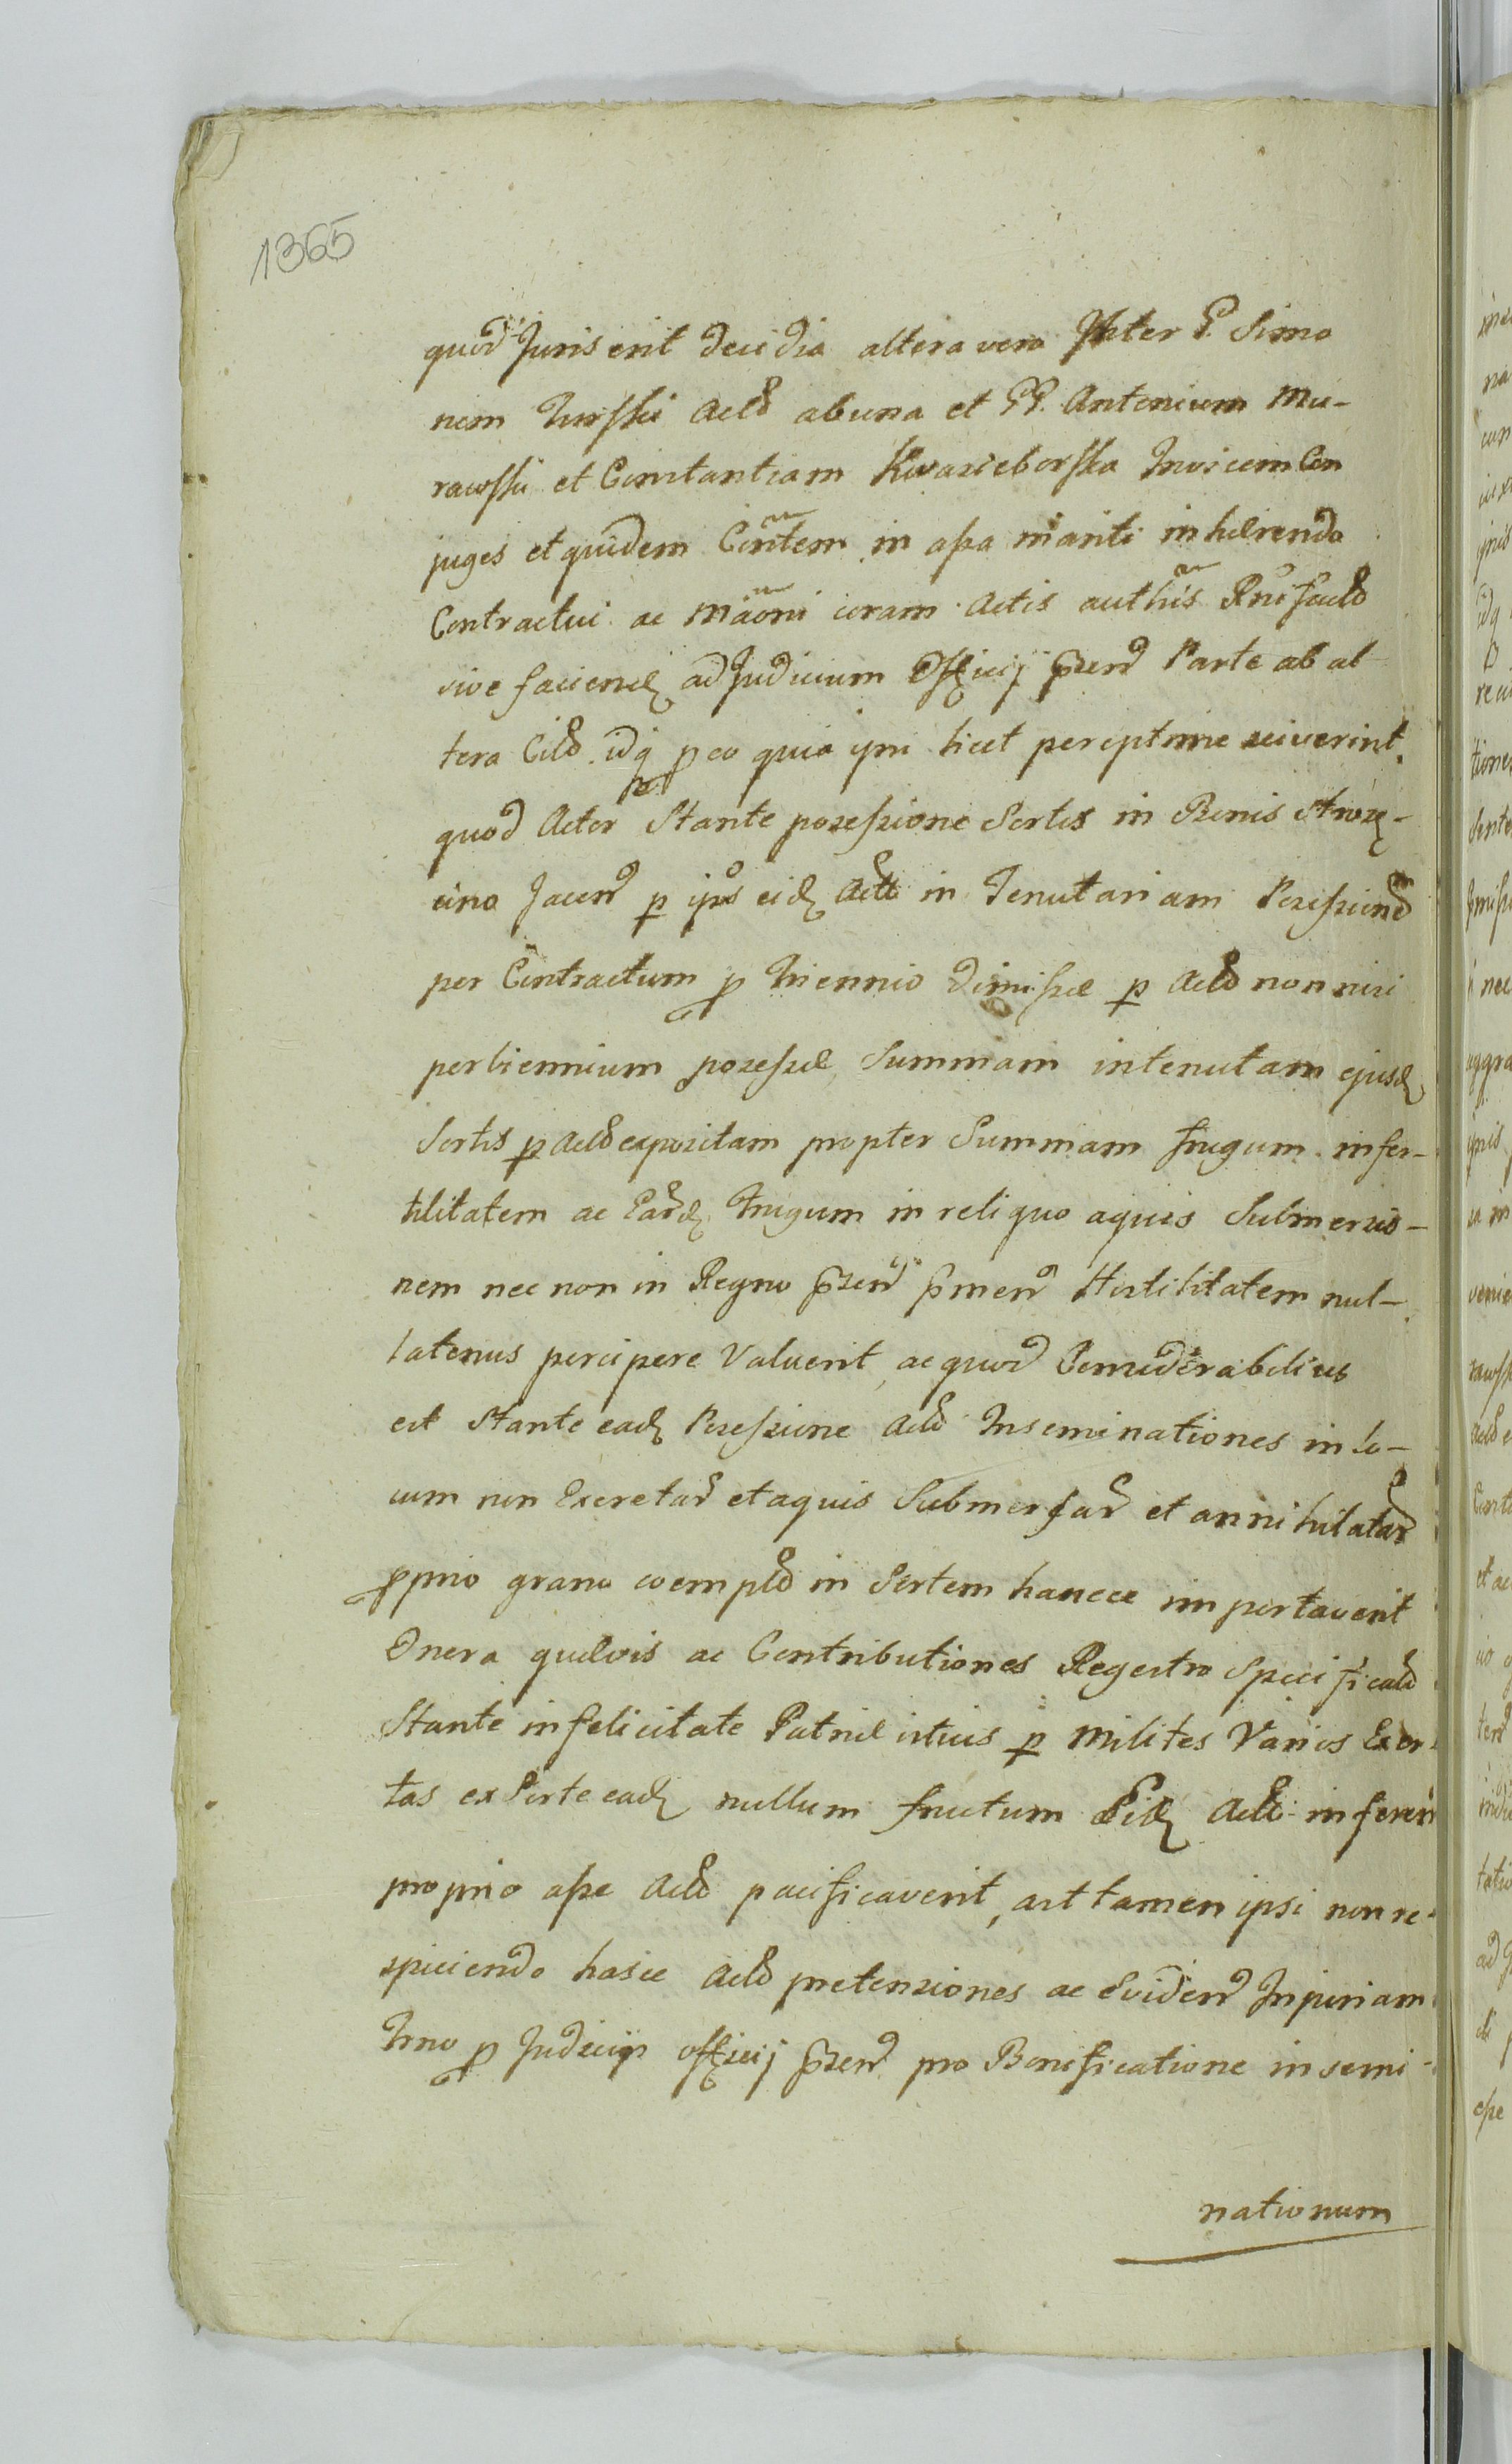 1365
quod Juris erit decidia altera vero Inter P. Simo
nem Turski Actō ab una et PP. Antonium Mu-
rawski et Constantiam Kwaszieborska Invicem Con
juges et quidem Cōntem in aszia mariti inhærendo
Contractui ac Māoni coram Actis authīs factō
sive faciend ad Judicium Officij przēn Parte ab al
tera Citō idq pro eo quia ipsi licet peroptime sciverint
quod Actor Stante poszeszione Sortis in Bonis
cino Jacen p ipos eid Actō in Tenutariam Poszeszionē
per Contractum pro triennio dimiszæ p Actō non nisi
per biennium poszeszæ, Summam in tenutam ejusd
Sortis p Actō expositam propter Summam frugum infer-
tilitatem ac Earūd frugum in reliquo aquis Submersio-
nem nec non in Regno przēn prmēn Hostilitatem nul-
latenus percipere Valuerit, ac quod Considerabilius
est Stante ead Poszeszione Actō Inseminationes in lo-
cum non Excretar et aquis Submersar et annihilatar
pprio grano coemptō in Sortem hancce importaverit
Onera quævis ac Contributiones Regestro Specificatō
Stante infelicitate Patriæ istius p Milites Varios Exor-
tas ex Sorte ead nullum fructum Eid Actō inferen
proprio asze Actō pacificaverit, ast tamen ipsi non re-
spiciendo hasce Actō pretensiones ac Eviden Injuriam
Imo pro Judicijs officij przēn pro Bonificatione insemi-
nationum